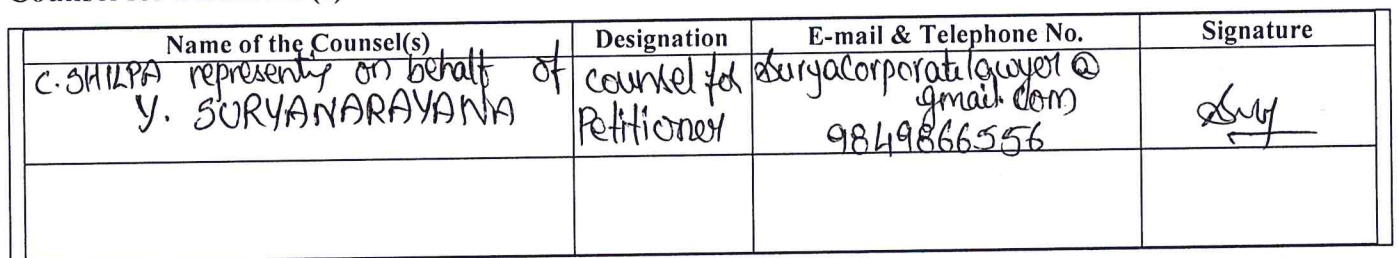 Name of the Counsel(s) Designation E-mail & Telephone No. Signature
C. SHILPA representing on behalf of
Y. SURYANARAYANA
counsel for
Petitioner
Suryacorporatelawyer@
gmail.com
9849866556